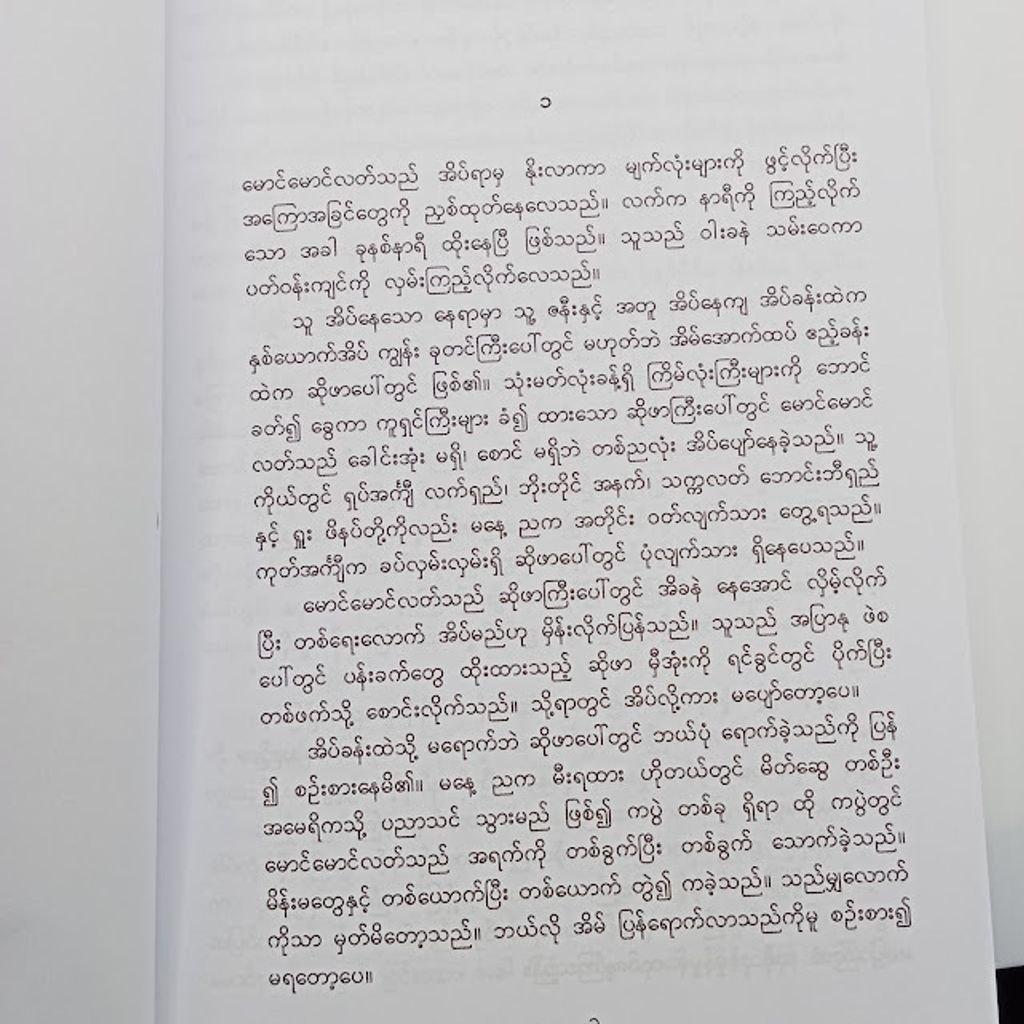 ၁
မောင်မောင်လတ်သည် အိပ်ရာမှ နိုးလာကာ မျက်လုံးများကို ဖွင့်လိုက်ပြီး
အကြောအခြင်တွေကို ညှစ်ထုတ်နေလေသည်။ လက်က နာရီကို ကြည့်လိုက်
သော အခါ ခုနစ်နာရီ ထိုးနေပြီ ဖြစ်သည်။ သူသည် ဝါးခနဲ သမ်းဝေကာ
ပတ်ဝန်းကျင်ကို လှမ်းကြည့်လိုက်လေသည်။
သူ အိပ်နေသော နေရာမှာ သူ့ ဇနီးနှင့် အတူ အိပ်နေကျ အိပ်ခန်းထဲက
နှစ်ယောက်အိပ် ကျွန်း ခုတင်ကြီးပေါ်တွင် မဟုတ်ဘဲ အိမ်အောက်ထပ် ဧည့်ခန်း
ထဲက ဆိုဖာပေါ်တွင် ဖြစ်၏။ သုံးမတ်လုံးခန့်ရှိ ကြိမ်လုံးကြီးများကို ဘောင်
ခတ်၍ ခွေကာ ကူရှင်ကြီးများ ခံ၍ ထားသော ဆိုဖာကြီးပေါ်တွင် မောင်မောင်
လတ်သည် ခေါင်းအုံး မရှိ၊ စောင် မရှိဘဲ တစ်ညလုံး အိပ်ပျော်နေခဲ့သည်။ သူ့
ကိုယ်တွင် ရှပ်အင်္ကျီ လက်ရှည်၊ ဘိုးတိုင် အနက်၊ သက္ကလတ် ဘောင်းဘီရှည်
နှင့် ရှူး ဖိနပ်တို့ကိုလည်း မနေ့ ညက အတိုင်း ဝတ်လျက်သား တွေ့ရသည်။
ကုတ်အင်္ကျီက ခပ်လှမ်းလှမ်းရှိ ဆိုဖာပေါ်တွင် ပုံလျက်သား ရှိနေပေသည်။
မောင်မောင်လတ်သည် ဆိုဖာကြီးပေါ်တွင် အိခနဲ နေအောင် လှိမ့်လိုက်
ပြီး တစ်ရေးလောက် အိပ်မည်ဟု မှိန်းလိုက်ပြန်သည်။ သူသည် အပြာနု ဖဲစ
ပေါ်တွင် ပန်းခက်တွေ ထိုးထားသည့် ဆိုဖာ မှီအုံးကို ရင်ခွင်တွင် ပိုက်ပြီး
တစ်ဖက်သို့ စောင်းလိုက်သည်။ သို့ရာတွင် အိပ်လို့ကား မပျော်တော့ပေ။
အိပ်ခန်းထဲသို့ မရောက်ဘဲ ဆိုဖာပေါ်တွင် ဘယ်ပုံ ရောက်ခဲ့သည်ကို ပြန်
၍ စဉ်းစားနေမိ၏။ မနေ့ ညက မီးရထား ဟိုတယ်တွင် မိတ်ဆွေ တစ်ဦး
အမေရိကသို့ ပညာသင် သွားမည် ဖြစ်၍ ကပွဲ တစ်ခု ရှိရာ ထို ကပွဲတွင်
မောင်မောင်လတ်သည် အရက်ကို တစ်ခွက်ပြီး တစ်ခွက် သောက်ခဲ့သည်။
မိန်းမတွေနှင့် တစ်ယောက်ပြီး တစ်ယောက် တွဲ၍ ကခဲ့သည်။ သည်မျှလောက်
ကိုသာ မှတ်မိတော့သည်။ ဘယ်လို အိမ် ပြန်ရောက်လာသည်ကိုမူ စဉ်းစား၍
မရတော့ပေ။